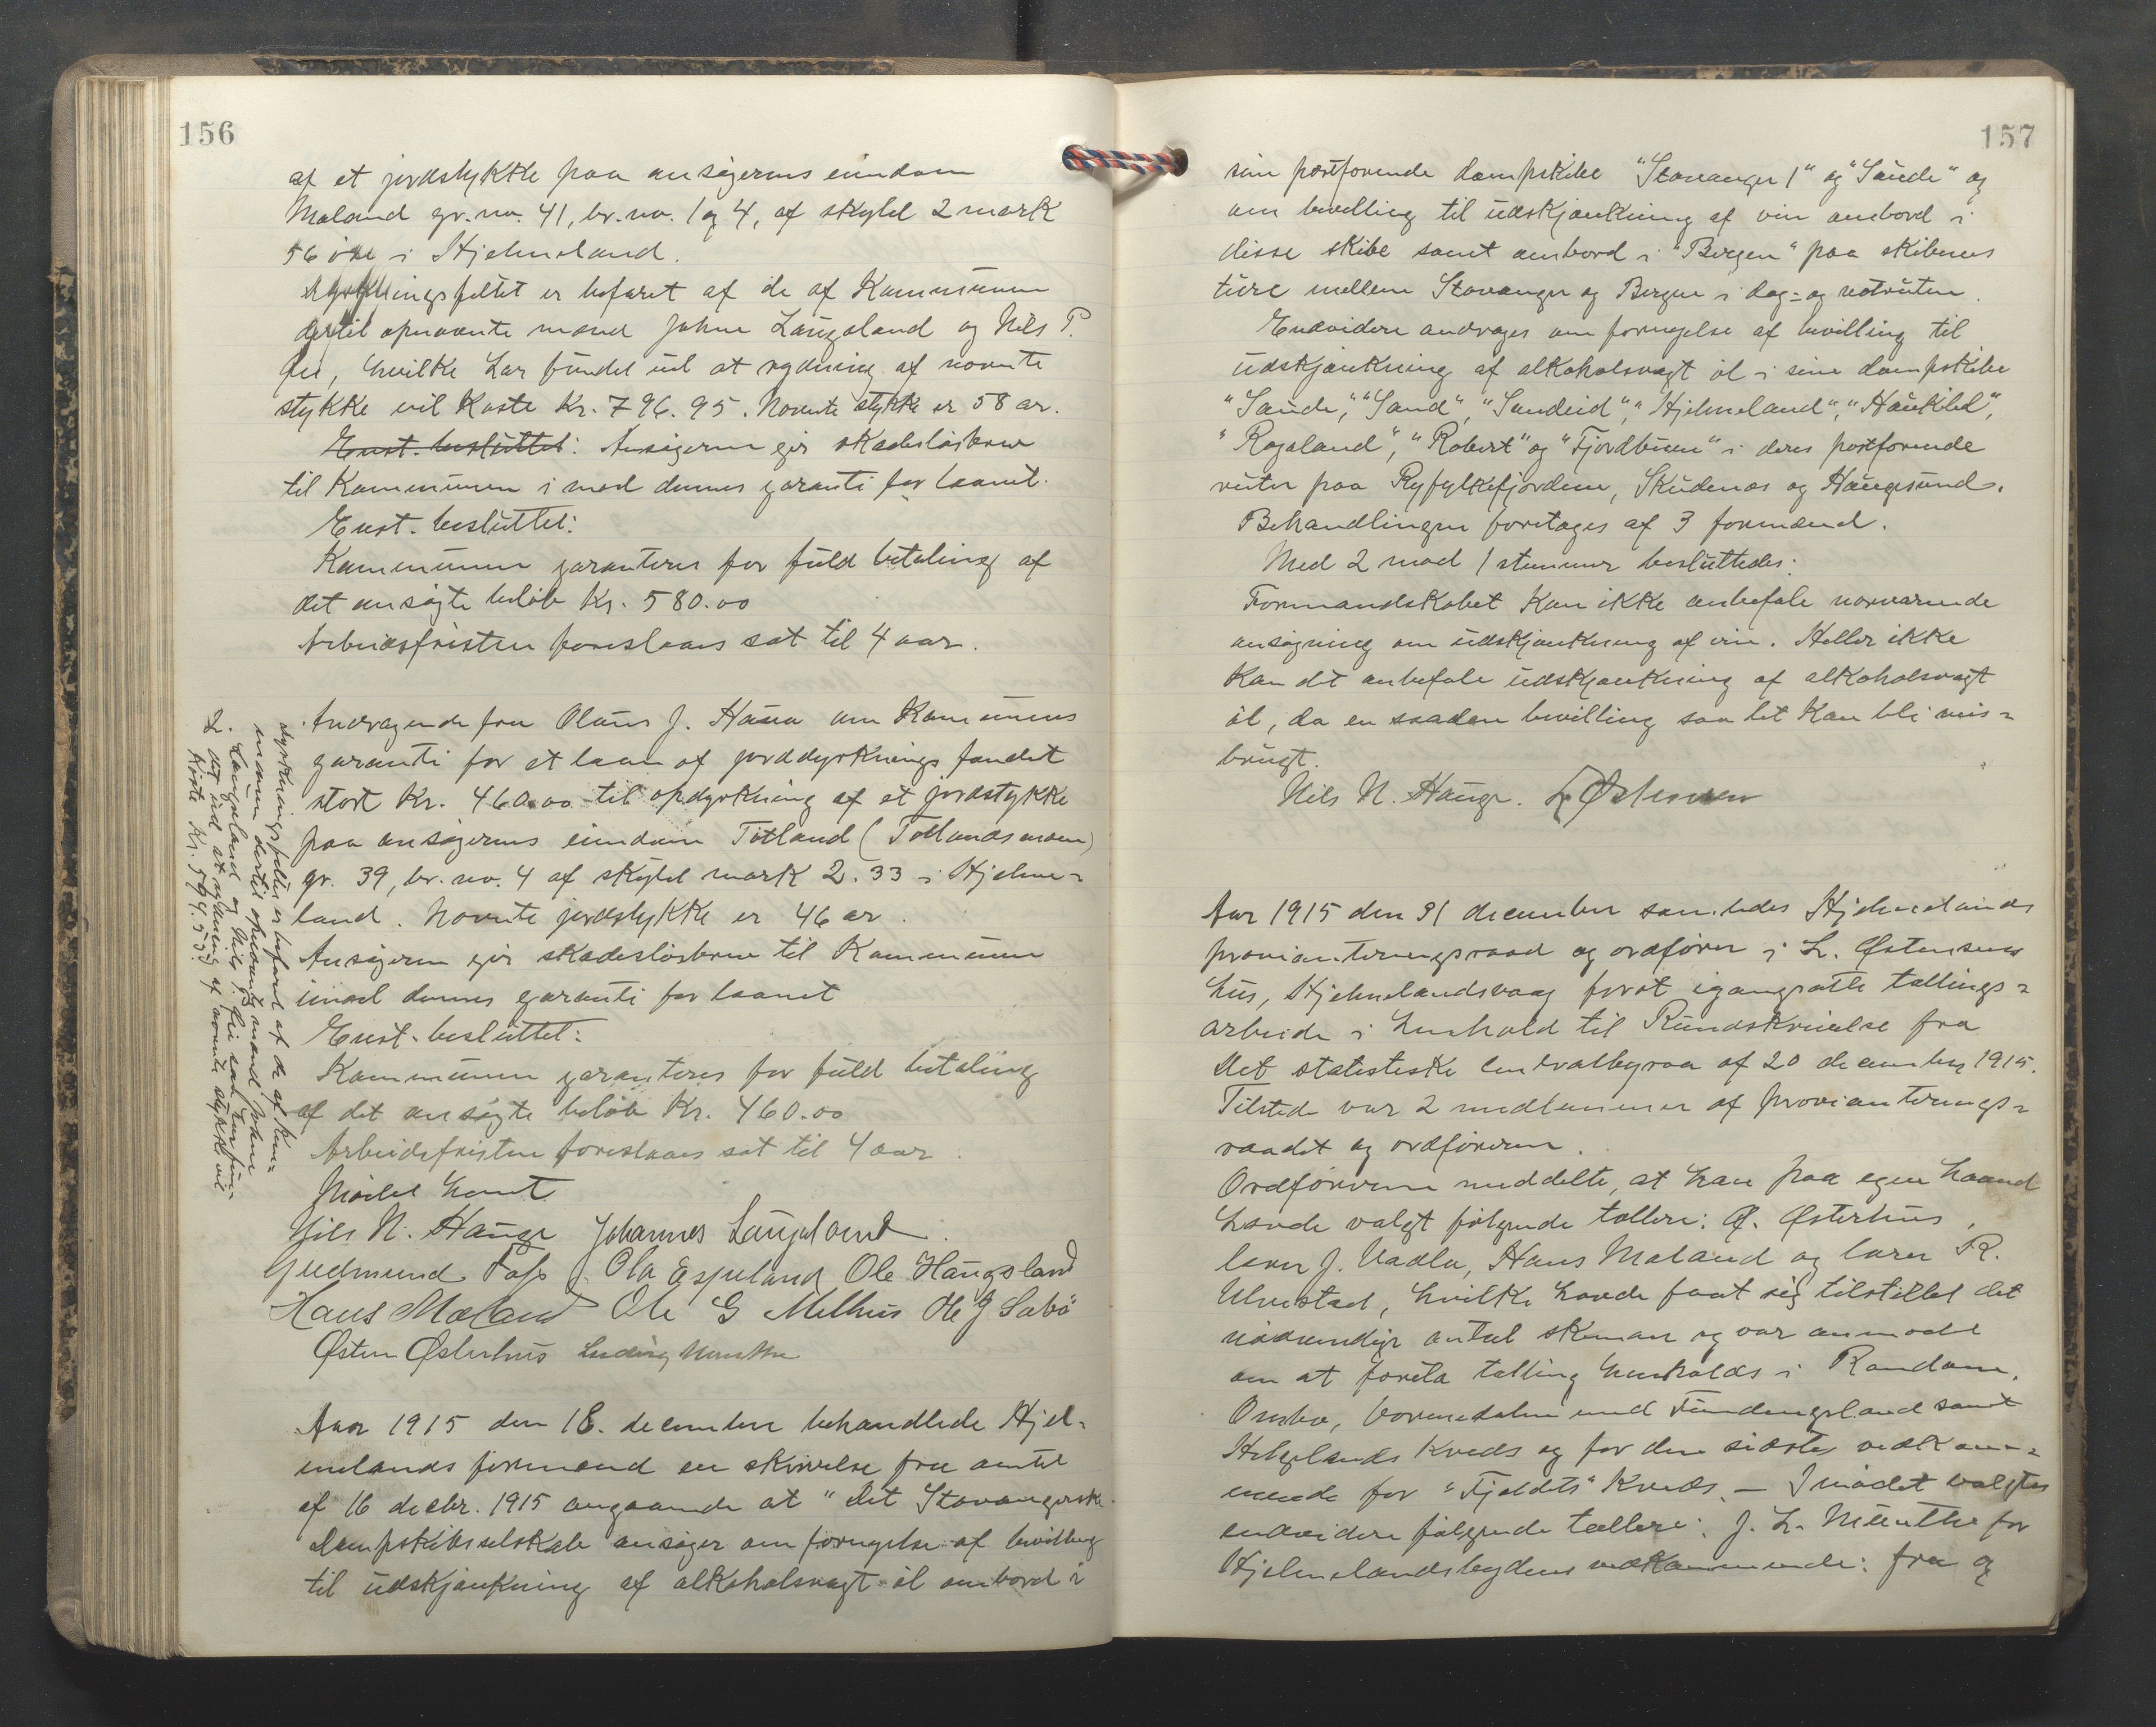 156
af et jordstykke paa ansøgerens eiendom
Mæland gr. no. 41, br. no. 1 og 4, af skyld 2 mark
56 øre i Hjelmeland.
Dyrkningsfeltet er befaret af de af Kommunen
dertil opnævnte mænd Johne Laugaland og Nils P.
hvilke har fundet ud at rydning af nævnte
stykke vil koste Kr. 796.95. Nævnte stykke er 58 ar.
Enst. besluttet: Ansøgeren gir skadesløsbrev
til Kommunen imod dennes garanti for laanet.
Enst. besluttet:
Kommunen garanteres for fuld betaling af
det ansøgte beløb Kr. 580.00
Arbeidsfristen foreslaaes sat til 4 aar.
Andragende fra Olaus J. Haua om Kommunens
garanti for et laan af jorddyrknings fondet
stort Kr. 460.00 til opdyrkning af et jordstykke
paa ansøgerens eiendom Tøtland (Tøtlandsmoen)
gr. 39, br. no. 4 af skyld mark 2.33 i Hjelme-
land. Nævnte jordstykke er 46 ar.
Ansøgeren gir skadesløsbrev til Kommunen
imod dennes garanti for laanet
Enst. besluttet:
Kommunen garanteres for fuld betaling
af det ansøgte beløb Kr. 460.00
Arbeidsfristen foreslaaes sat til 4 aar.
Mødet hævet
Nils N. Hauge Johannes Laugaland.
Gudmund Foss Ola Espeland Ole Haugsland
Hans Mæland Ole G Melhus Ole J Sabø
Østen Østerhus Ludvig Munthe
Dyrkningsfeltet er befaret af de af Kom-
munen dertil opnævnte mænd Johne
Laugaland og Nils P. har fun-
det ud at rydning af nævnte stykke vil
koste Kr. 594.55.
Aar 1915 den 18. december behandlede Hjel-
melands formænd en skrivelse fra amtet
af 16 decbr. 1915 angaaende at "Det Stavangerske
Dampskibsselskab" ansøger om fornyelse af bevilling
til udskjænkning af alkoholsvagt øl ombord i
157
sine postførende dampskibe "Stavanger 1" og "Saude" og
om bevilling til udskjænkning af vin ombord i
disse skibe samt ombord i "Bergen" paa skibenes
ture mellem Stavanger og Bergen i dag- og natruten.
Endvidere andrages om fornyelse af bevilling til
udskjænkning af alkoholsvagt øl i sine dampskibe
"Saude", "Sand", "Sandeid", "Hjelmeland", "Haukelid",
"Rogaland", "Robert" og "Fjordbuen" i deres postførende
ruter paa Ryfylkefjordene, Skudenæs og Haugesund.
Behandlingen foretages af 3 formænd.
Med 2 mod 1 stemmer besluttedes:
Formandskabet kan ikke anbefale nærværende
ansøgning om udskjænkning af vin. Heller ikke
kan det anbefale udskjænkning af alkoholsvagt
øl, da en saadan bevilling saa let kan bli mis-
brugt.
Nils N. Hauge. L Østensen
Aar 1915 den 31 december samledes Hjelmelands
provianteringsraad og ordfører i L. Østensens
hus, Hjelmelandsvaag forat igangsætte tællings-
arbeide i henhold til Rundskrivelse fra
Det statistiske centralbyraa af 20 december 1915.
Tilstede var 2 medlemmer af provianterings-
raadet og ordføreren.
Ordføreren meddelte, at han paa egen haand
havde valgt følgende tællere: Ø. Østerhus,
lærer J. Vadla, Hans Mæland og lærer R.
Ulvestad, hvilke havde faat sig tilstillet det
nødvendige antal skemaer og var anmodet
om at foreta tælling henholds i Randøen,
Ombo, Vormedalen med Fundingsland samt
Helgelands Kreds og for den sidste vedkom-
mende for "Fjeldets" Kreds. — I mødet valgtes
endvidere følgende tællere: J. L. Munthe for
Hjelmelandsbygdens vedkommende: fra og